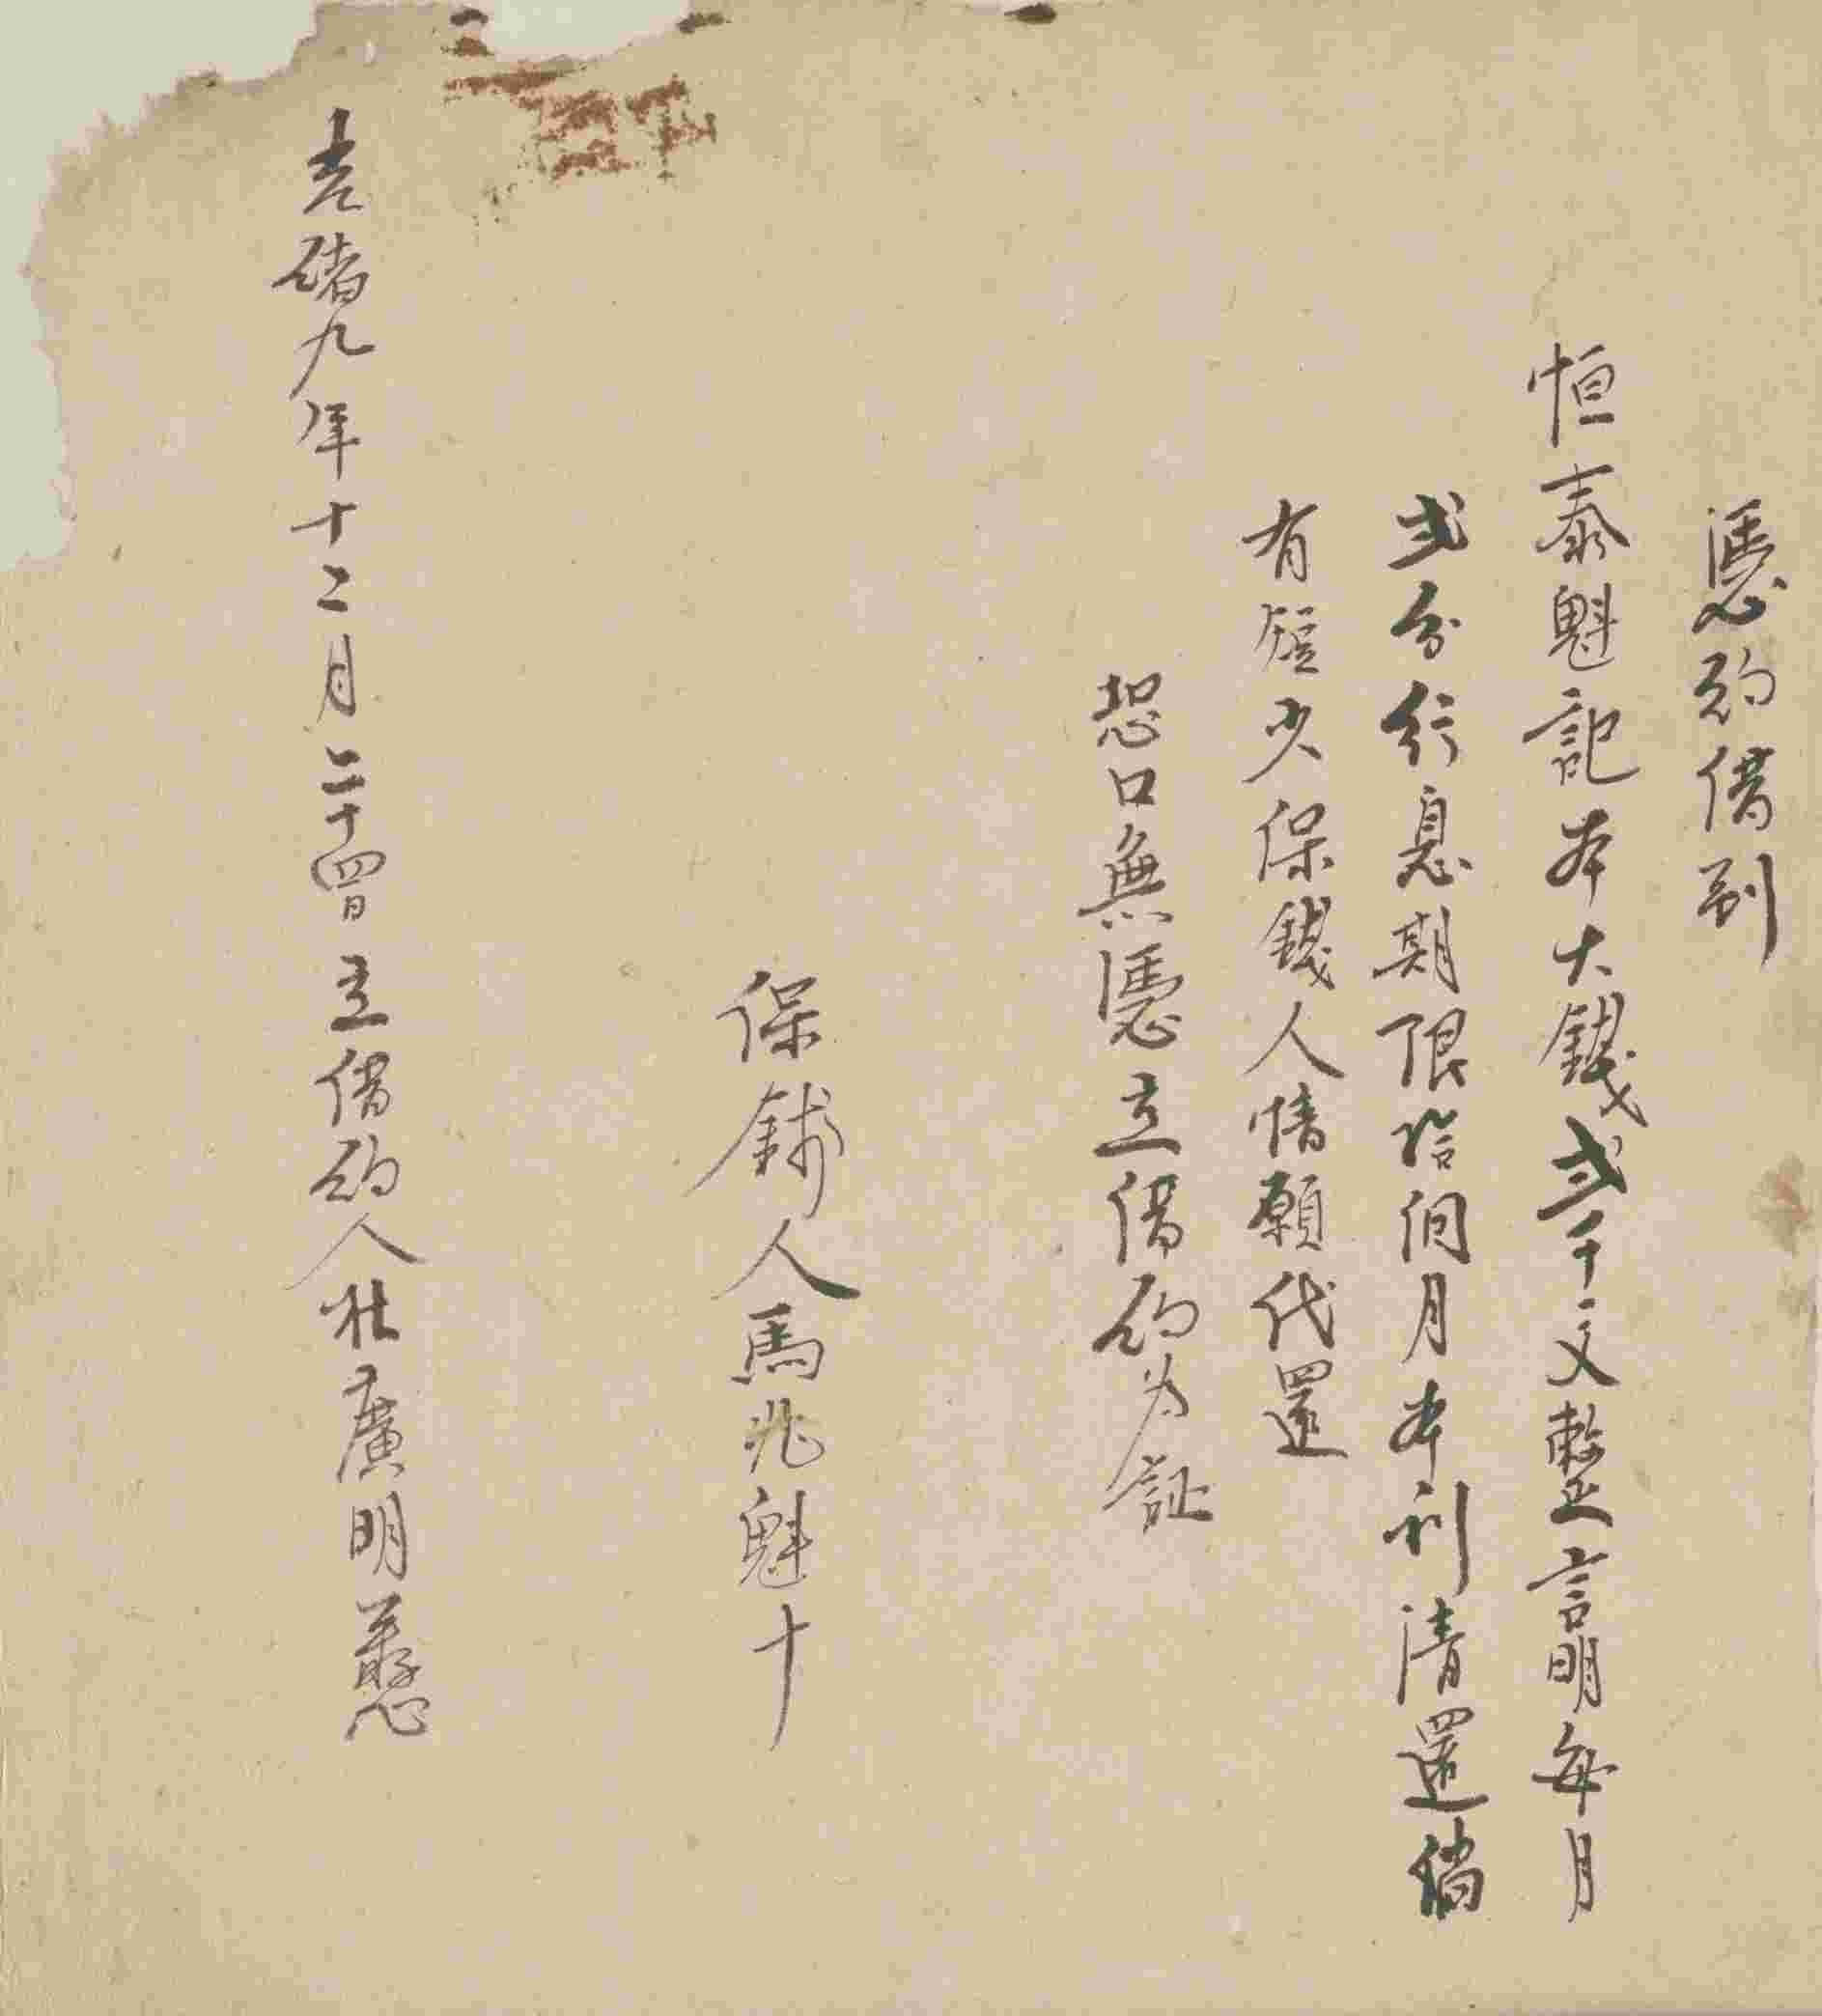 憑約借到
恒泰魁記本大錢弍千文整言明每月
弍分行息期限俗间月本利清還倘
有短少保錢人情願代還
恐口無憑立借約为証
保錢人馬兆魁十
光緒九年十二月二十四日立借約人杜廣明